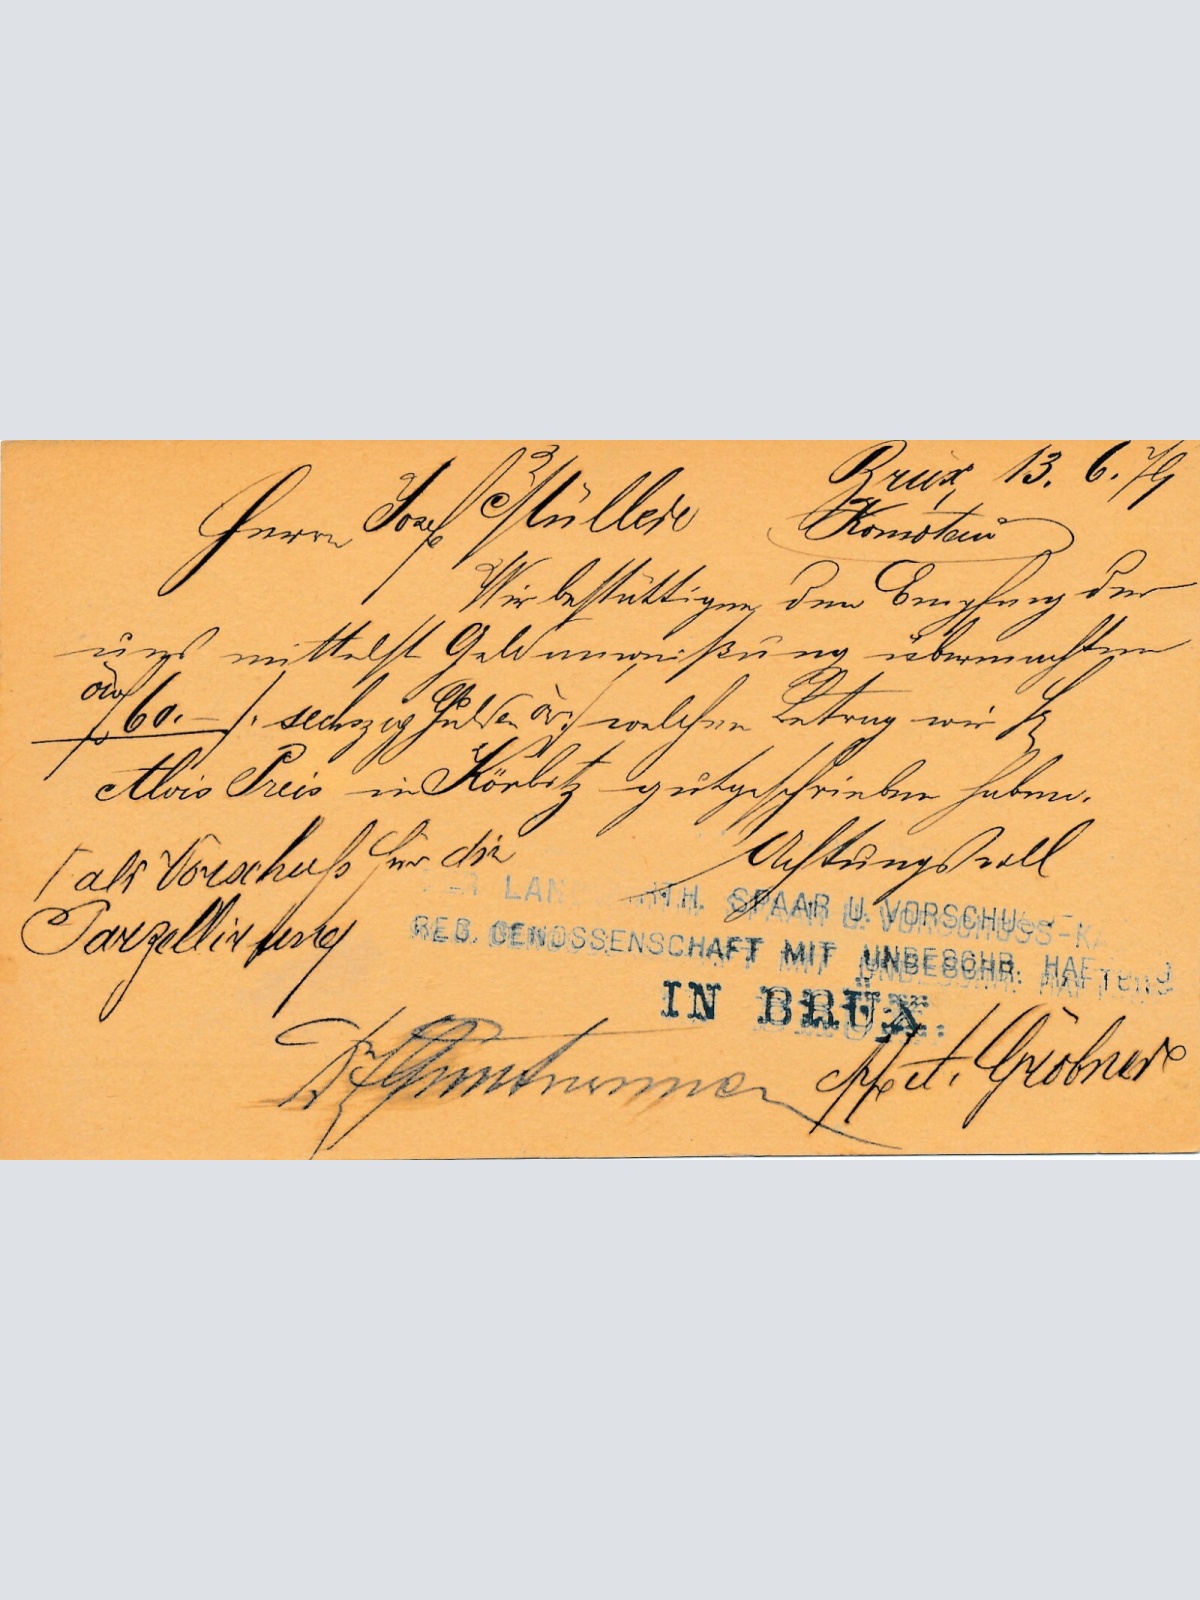 Brüx, 13. 6. 79
Herrn Josef Müller
Komotau
Wir bestättigen den Empfang der
uns mittelst Geldanweißung übermachten
60.— /: sechszig Gulden öw :/ welchen Betrag wir H
Alois Preis in Körbitz gutgeschrieben haben.
als Vorschuß für die Achtungsvoll
Parzellirung
LAN TH. SPAAR U. VORSCHUSS-KA
REG. GENOSSENSCHAFT MIT UNBESCHR. HAFTUNG
IN BRÜX.
Gröbner